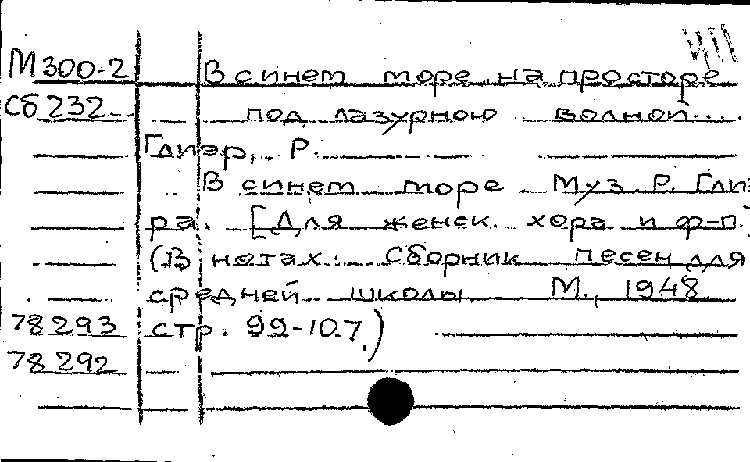 М300-2 В синем море на просторе
Сб232 под лазурною волной...
Глиэр, Р.
В синем море Муз. Р. Глиэ
ра. [Для женск. хора и ф-п.]
(В нотах: Сборник песен для
средней школы М., 1948
78293 стр. 99-107.)
78292